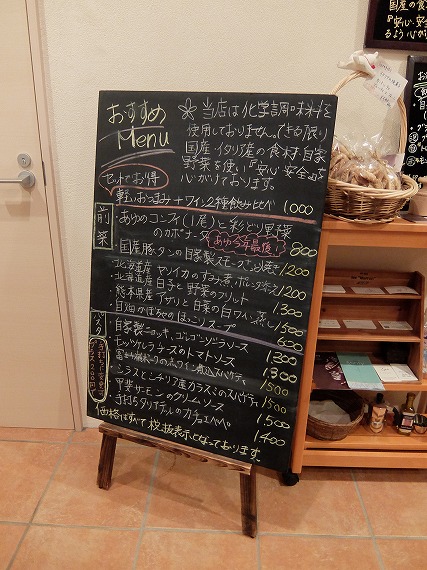 おすすめ
Menu
当店は化学調味料を
使用しておりません。できる限り
国産・イタリア産の食材・自家
野菜を使い『安心・安全』を
心がけております。
セットでお得
軽いおつまみ+ワイン2種飲み比べ 1000
前菜
・あゆのコンフィ(1尾)と彩とり野菜
のカポナータ 800
あゆ今年最後
・国産豚タンの自家製スモーク 1200
・北海道産 ヤリイカのすみ煮、ポレンタ 1200
・北海道産 白子と野菜のフリット 1300
・熊本県産 アサリと白菜の白ワイン蒸し 1500
・自畑のかぼちゃのほっこりスープ 600
パスタ
・自家製ニョッキ、ゴルゴンゾーラソース 1300
・モッツァレラチーズのトマトソース 1300
赤ワイン煮込スパゲティ 1500
・シラスとシチリア産カラスミのスパゲティ 1500
・甲斐サーモンのクリームソース 1500
・手打ちタリアテッレのカチョエペペ 1400
価格はすべて税抜表示となっております。
国産の食
『安心・安
るよう心が